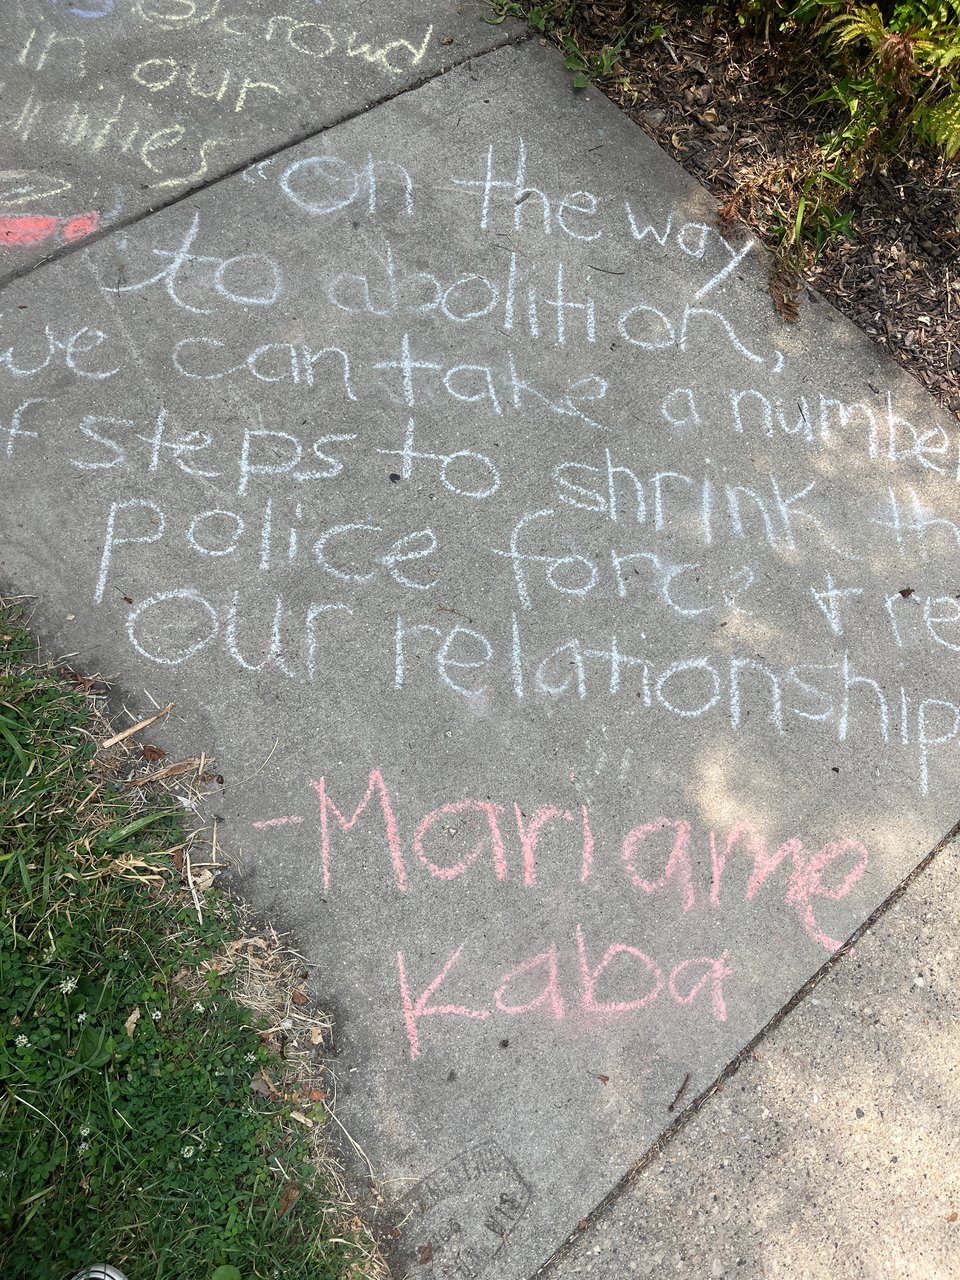 crowd
in our
"on the way
to abolition,
we can take a numbe
f steps to shrink th
police force + re
our relationship
-Mariame
Kaba
WIS